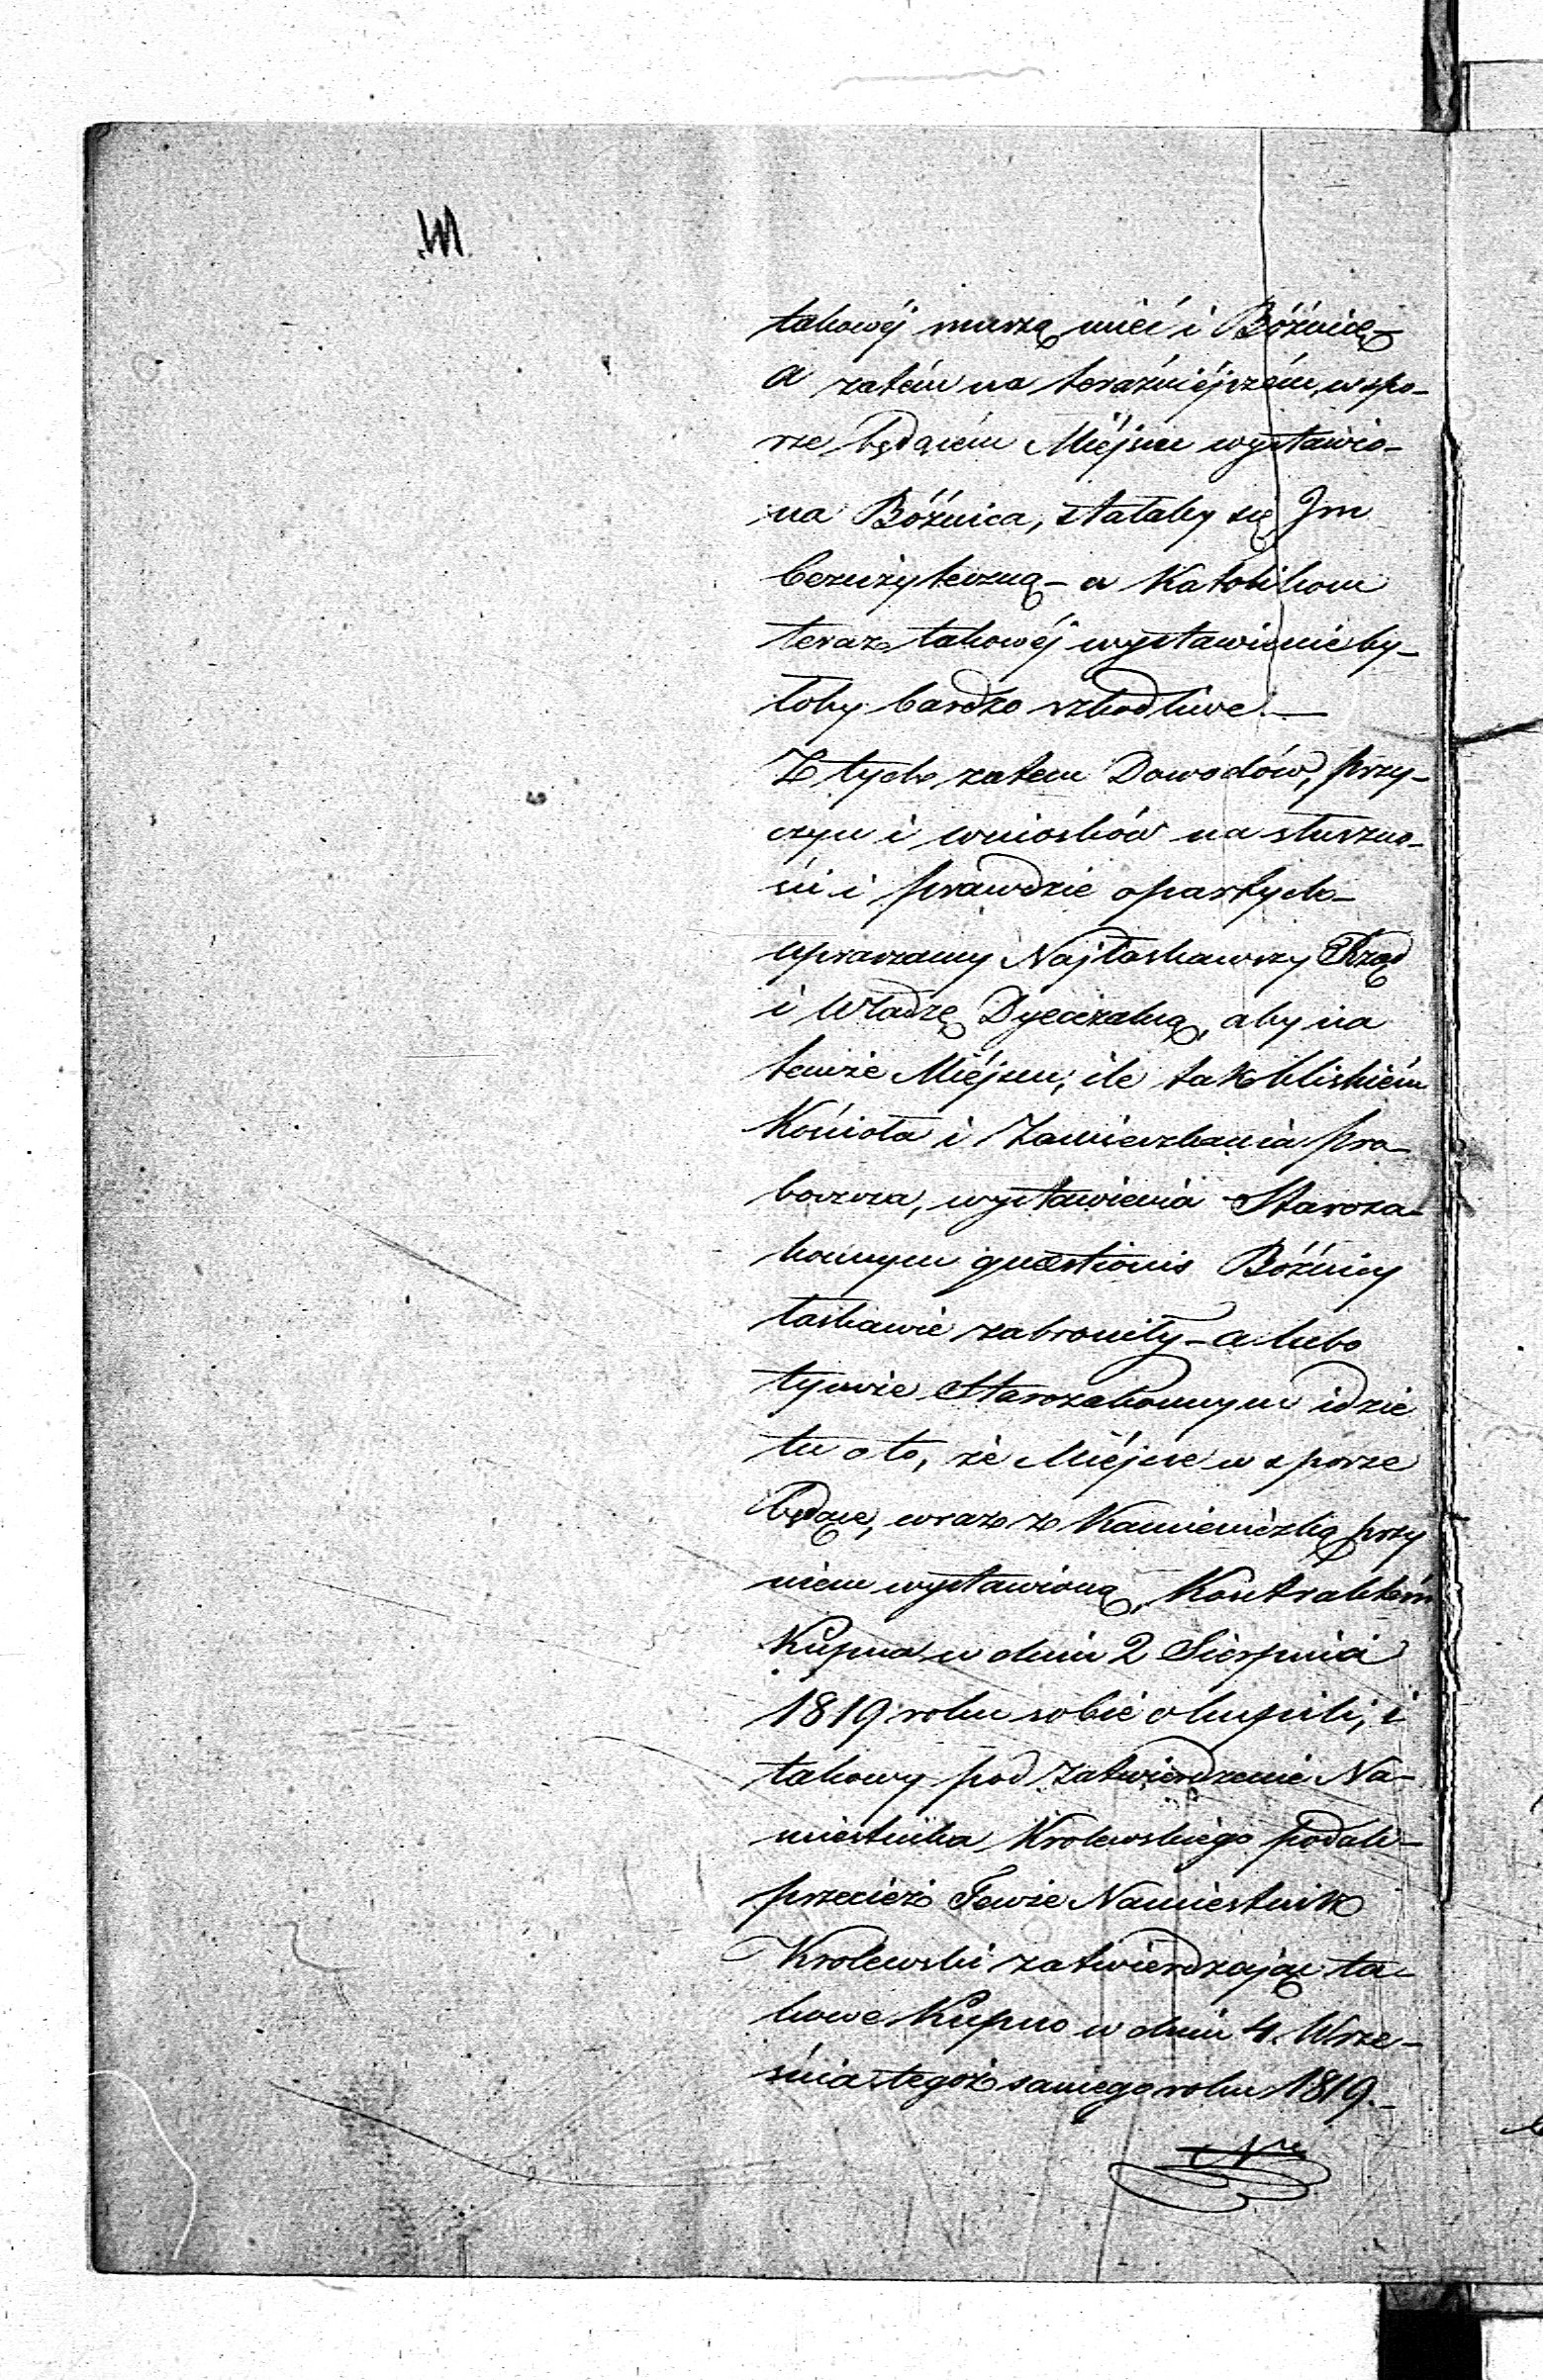 takowéj muszą mieć i Bóźnicę
a zatém na teraźniéjszém, w spo-
rze będącém Miéjscu wystawio-
na Bóźnica, stałaby się Jm
bezużyteczną – a Katolikom
teraz takowéj wystawienie by-
łoby bardzo szkodliwe. –
Z tych zatem Dowodów, przy-
czyn i wniosków na słuszno-
ści i prawdzie opartych –
upraszamy Najłaskawszy Rząd
i Władzę Dyecezalną, aby na
temże Miéjscu, ile tak bliskiém
Kościoła i Zamieszkania pro-
boszcza, wystawienia Staroza-
konnym quæstionis Bóźnicy
łaskawie zabroniły – a lubo
tymże Starozakonnym idzie
tu o to, że Miéjsce w sporze
będące, wraz z Kamieniczką przy
niem wystawioną, Kontraktem
Kupna w dniu 2 Sierpnia
1819 roku sobie okupili, i
takowy pod zatwierdzenie Na-
miestnika Krolewskiego podali –
przecież Tenże Namiestnik
Krolewski zatwierdzając ta-
kowe Kupno w dniu 4. Wrze-
śnia tegoż samego roku 1819. –